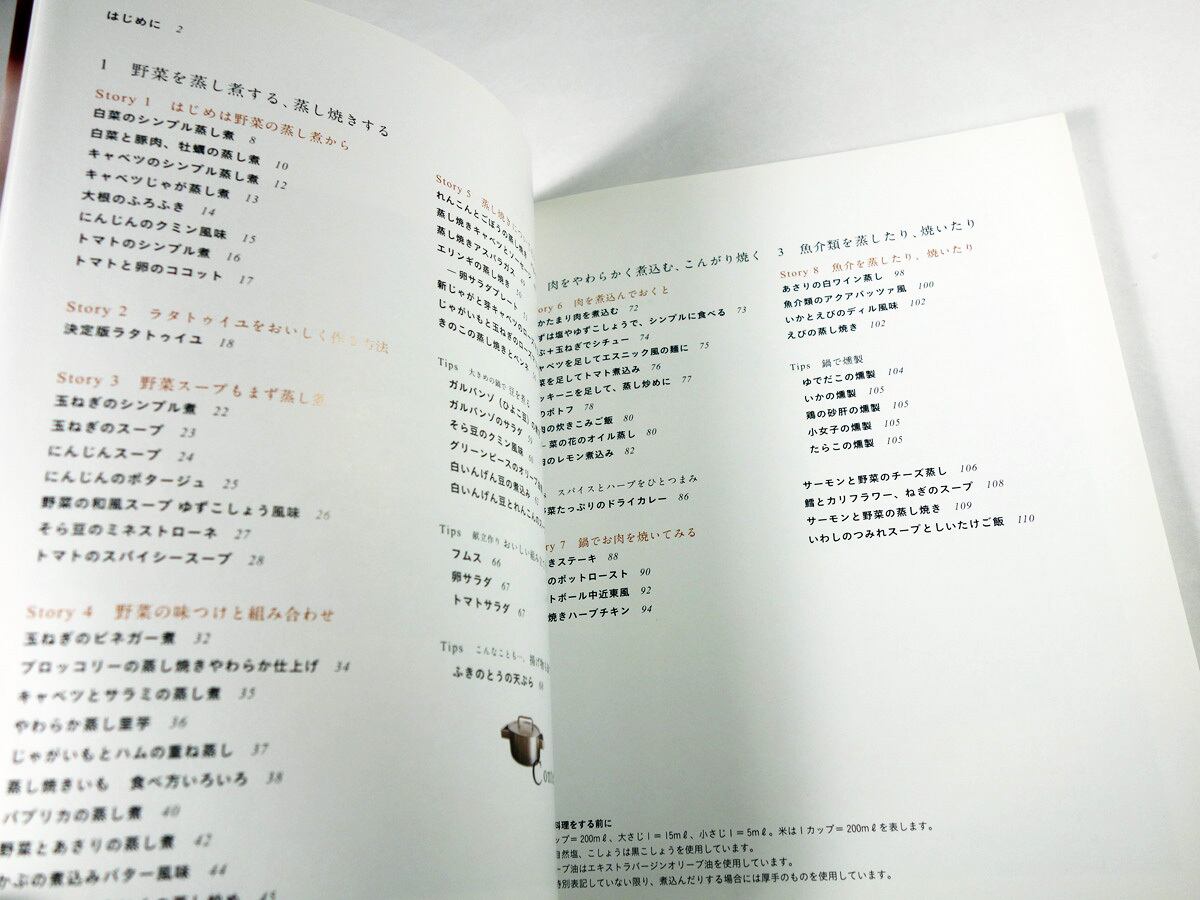 はじめに 2
1 野菜を蒸し煮する、蒸し焼きする
Story 1 はじめは野菜の蒸し煮から
白菜のシンプル蒸し煮 8
白菜と豚肉、牡蠣の蒸し煮 10
キャベツのシンプル蒸し煮 12
キャベツじゃが蒸し煮 13
大根のふろふき 14
にんじんのクミン風味 15
トマトのシンプル煮 16
トマトと卵のココット 17
Story 2 ラタトゥイユをおいしく作る方法
決定版ラタトゥイユ 18
Story 3 野菜スープもまず蒸し煮
玉ねぎのシンプル煮 22
玉ねぎのスープ 23
にんじんスープ 24
にんじんのポタージュ 25
野菜の和風スープ ゆずこしょう風味 26
そら豆のミネストローネ 27
トマトのスパイシースープ 28
Story 4 野菜の味つけと組み合わせ
玉ねぎのビネガー煮 32
ブロッコリーの蒸し焼きやわらか仕上げ 34
キャベツとサラミの蒸し煮 35
やわらか蒸し里芋 36
じゃがいもとハムの重ね蒸し 37
蒸し焼きいも 食べ方いろいろ 38
パプリカの蒸し煮 40
野菜とあさりの蒸し煮 42
かぶの煮込みバター風味 44
45
Story 5 蒸し焼き
れんこんとごぼうの蒸し焼き
蒸し焼きキャベツとソーセージ
蒸し焼きアスパラガス
エリンギの蒸し焼き 50
―卵サラダプレート 51
新じゃがと芽キャベツのロースト
じゃがいもと玉ねぎのロースト
きのこの蒸し焼きとペンネ
Tips 大きめの鍋で 豆を煮る
ガルバンゾ(ひよこ豆)
ガルバンゾのサラダ 59
そら豆のクミン風味 60
グリーンピースのオリーブ
白いんげん豆の煮込み 62
白いんげん豆とれんこんの
Tips 献立作り おいしい組み
フムス 66
卵サラダ 67
トマトサラダ 67
Tips こんなことも…、揚げ物も
ふきのとうの天ぷら 68
Cont
肉をやわらかく煮込む、こんがり焼く
ory 6 肉を煮込んでおくと
かたまり肉を煮込む 72
ずは塩やゆずこしょうで、シンプルに食べる 73
ぶ＋玉ねぎでシチュー 74
ャベツを足してエスニック風の麺に 75
菜を足してトマト煮込み 76
ッキーニを足して、蒸し炒めに 77
のポトフ 78
肉の炊きこみご飯 80
―菜の花のオイル蒸し 80
肉のレモン煮込み 82
s スパイスとハーブをひとつまみ
菜たっぷりのドライカレー 86
ry 7 鍋でお肉を焼いてみる
きステーキ 88
のポットロースト 90
トボール中近東風 92
焼きハーブチキン 94
3 魚介類を蒸したり、焼いたり
Story 8 魚介を蒸したり、焼いたり
あさりの白ワイン蒸し 98
魚介類のアクアパッツァ風 100
いかとえびのディル風味 102
えびの蒸し焼き 102
Tips 鍋で燻製
ゆでだこの燻製 104
いかの燻製 105
鶏の砂肝の燻製 105
小女子の燻製 105
たらこの燻製 105
サーモンと野菜のチーズ蒸し 106
鱈とカリフラワー、ねぎのスープ 108
サーモンと野菜の蒸し焼き 109
いわしのつみれスープとしいたけご飯 110
料理をする前に
ップ＝200mℓ、大さじ1＝15mℓ、小さじ1＝5mℓ。米は1カップ＝200mℓを表します。
自然塩、こしょうは黒こしょうを使用しています。
ーブ油はエキストラバージンオリーブ油を使用しています。
特別表記していない限り、煮込んだりする場合には厚手のものを使用しています。